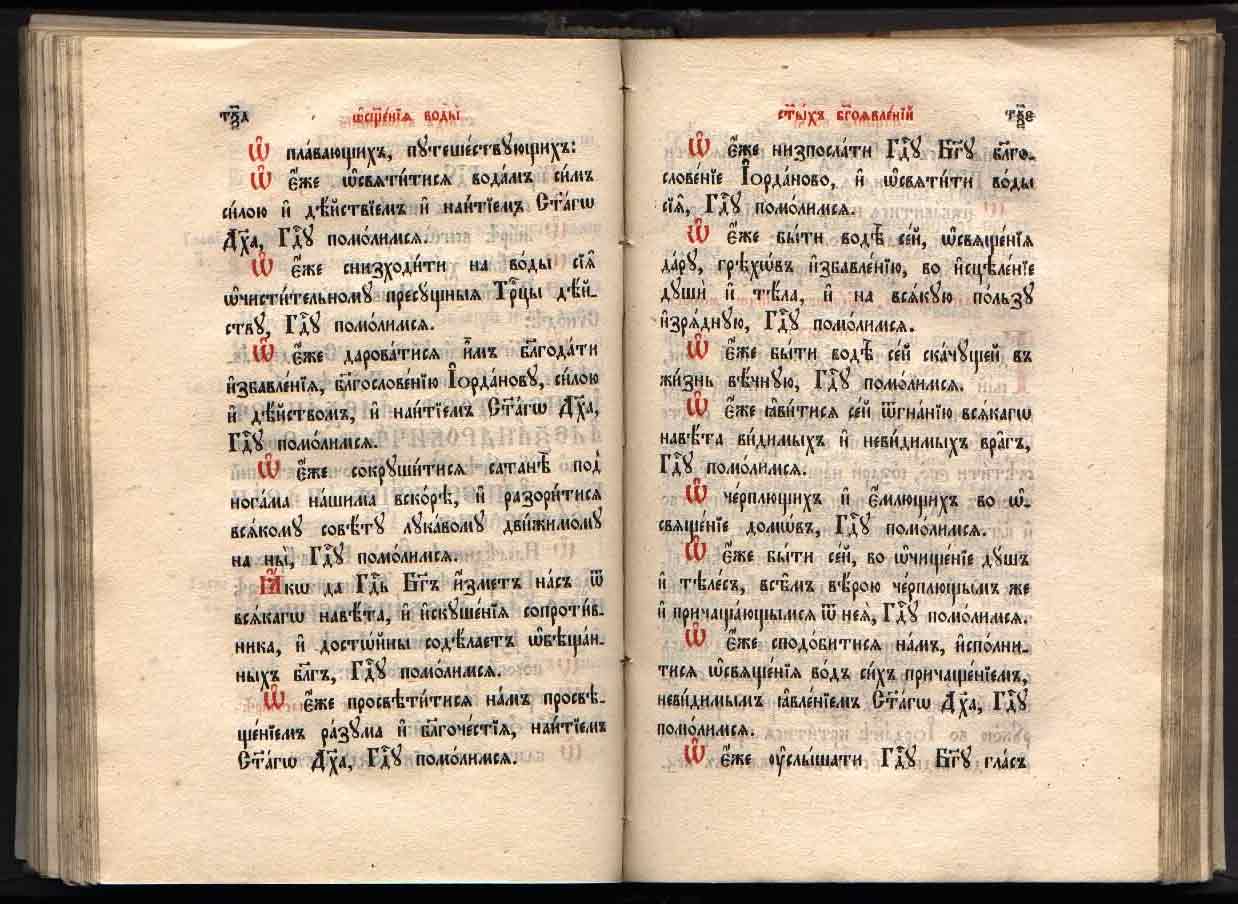 тѯ҃д ѡ҆сщ҃е́нїѧ воды̀
Ѡ҆ пла́вающихъ, пꙋтеше́ствꙋющихъ:
Ѡ҆ є҆́же ѡ҆свѧти́тисѧ вода́мъ си̑мъ
си́лою и҆ дѣ́йствїемъ и҆ наи́тїемъ Ст҃а́гѡ
Дх҃а, Гдⷭ҇ꙋ помо́лимсѧ.
Ѡ҆ є҆́же снизходи́ти на во́ды сїѧ̑
ѡ҆чисти́тельномꙋ пресꙋ́щныѧ Трⷪ҇цы дѣ́й-
ствꙋ, Гдⷭ҇ꙋ помо́лимсѧ.
Ѡ҆ є҆́же дарова́тисѧ и҆̀мъ блгⷣода́ти
и҆збавле́нїѧ, блгⷭ҇ослове́нїю І҆ѻрда́новꙋ, си́лою
и҆ дѣ́йствомъ, и҆ наи́тїемъ Ст҃а́гѡ Дх҃а,
Гдⷭ҇ꙋ помо́лимсѧ.
Ѡ҆ є҆́же сокрꙋши́тисѧ сатанѣ̀ под̾
нога́ма на́шима вско́рѣ, и҆ разори́тисѧ
всѧ́комꙋ совѣ́тꙋ лꙋка́вомꙋ дви́жимомꙋ
на ны̀, Гдⷭ҇ꙋ помо́лимсѧ.
Ꙗ҆́кѡ да Гдⷭ҇ь Бг҃ъ и҆́зметъ на́съ ѿ
всѧ́кагѡ навѣ́та, и҆ и҆скꙋше́нїѧ сопроти́в-
ника, и҆ досто́йны содѣ́лаетъ ѡ҆бѣща́н-
ныхъ бл҃гъ, Гдⷭ҇ꙋ помо́лимсѧ.
Ѡ҆ є҆́же просвѣти́тисѧ на́мъ просвѣ-
ще́нїемъ ра́зꙋма и҆ бл҃гоче́стїѧ, наи́тїемъ
Ст҃а́гѡ Дх҃а, Гдⷭ҇ꙋ помо́лимсѧ.
ст҃ы́хъ бг҃оѧвле́нїй тѯ҃е
Ѡ҆ є҆́же низпосла́ти Гдⷭ҇ꙋ Бг҃ꙋ блгⷭ҇о-
слове́нїе І҆ѻрда́ново, и҆ ѡ҆свѧти́ти во́ды
сїѧ̑, Гдⷭ҇ꙋ помо́лимсѧ.
Ѡ҆ є҆́же бы́ти водѣ̀ се́й, ѡ҆сщ҃е́нїѧ
да́рꙋ, грѣхѡ́въ и҆збавле́нїю, во и҆сцѣле́нїе
дꙋшѝ и҆ тѣ́ла, и҆ на всѧ́кꙋю по́льзꙋ
и҆зрѧ́днꙋю, Гдⷭ҇ꙋ помо́лимсѧ.
Ѡ҆ є҆́же бы́ти водѣ̀ се́й ска́чꙋщей въ
жи́знь вѣ́чнꙋю, Гдⷭ҇ꙋ помо́лимсѧ.
Ѡ҆ є҆́же ꙗ҆ви́тисѧ се́й ѿгна́нїю всѧ́кагѡ
навѣ́та ви́димыхъ и҆ неви́димыхъ вра̑гъ,
Гдⷭ҇ꙋ помо́лимсѧ.
Ѡ҆ че́рплющихъ и҆ є҆́млющихъ во ѡ҆-
свѧще́нїе домѡ́въ, Гдⷭ҇ꙋ помо́лимсѧ.
Ѡ҆ є҆́же бы́ти се́й, во ѡ҆чище́нїе дꙋ́шъ
и҆ тѣле́съ, всѣ̑мъ вѣ́рою че́рплющымъ же
и҆ причаща́ющымсѧ ѿ неѧ̀, Гдⷭ҇ꙋ помо́лимсѧ.
Ѡ҆ є҆́же сподо́битисѧ на́мъ, и҆спо́лни-
тисѧ ѡ҆свѧще́нїѧ во́дъ си́хъ причаще́нїемъ,
неви́димымъ ꙗ҆вле́нїемъ Ст҃а́гѡ Дх҃а, Гдⷭ҇ꙋ
помо́лимсѧ.
Ѡ҆ є҆́же ᲂу҆слы́шати Гдⷭ҇ꙋ Бг҃ꙋ гла́съ